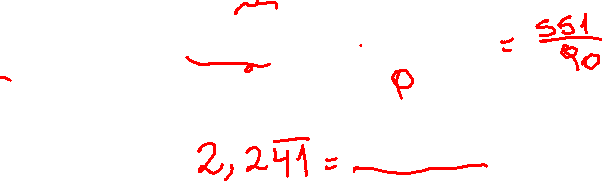 = 551/90
2,24̅1̅ = ____